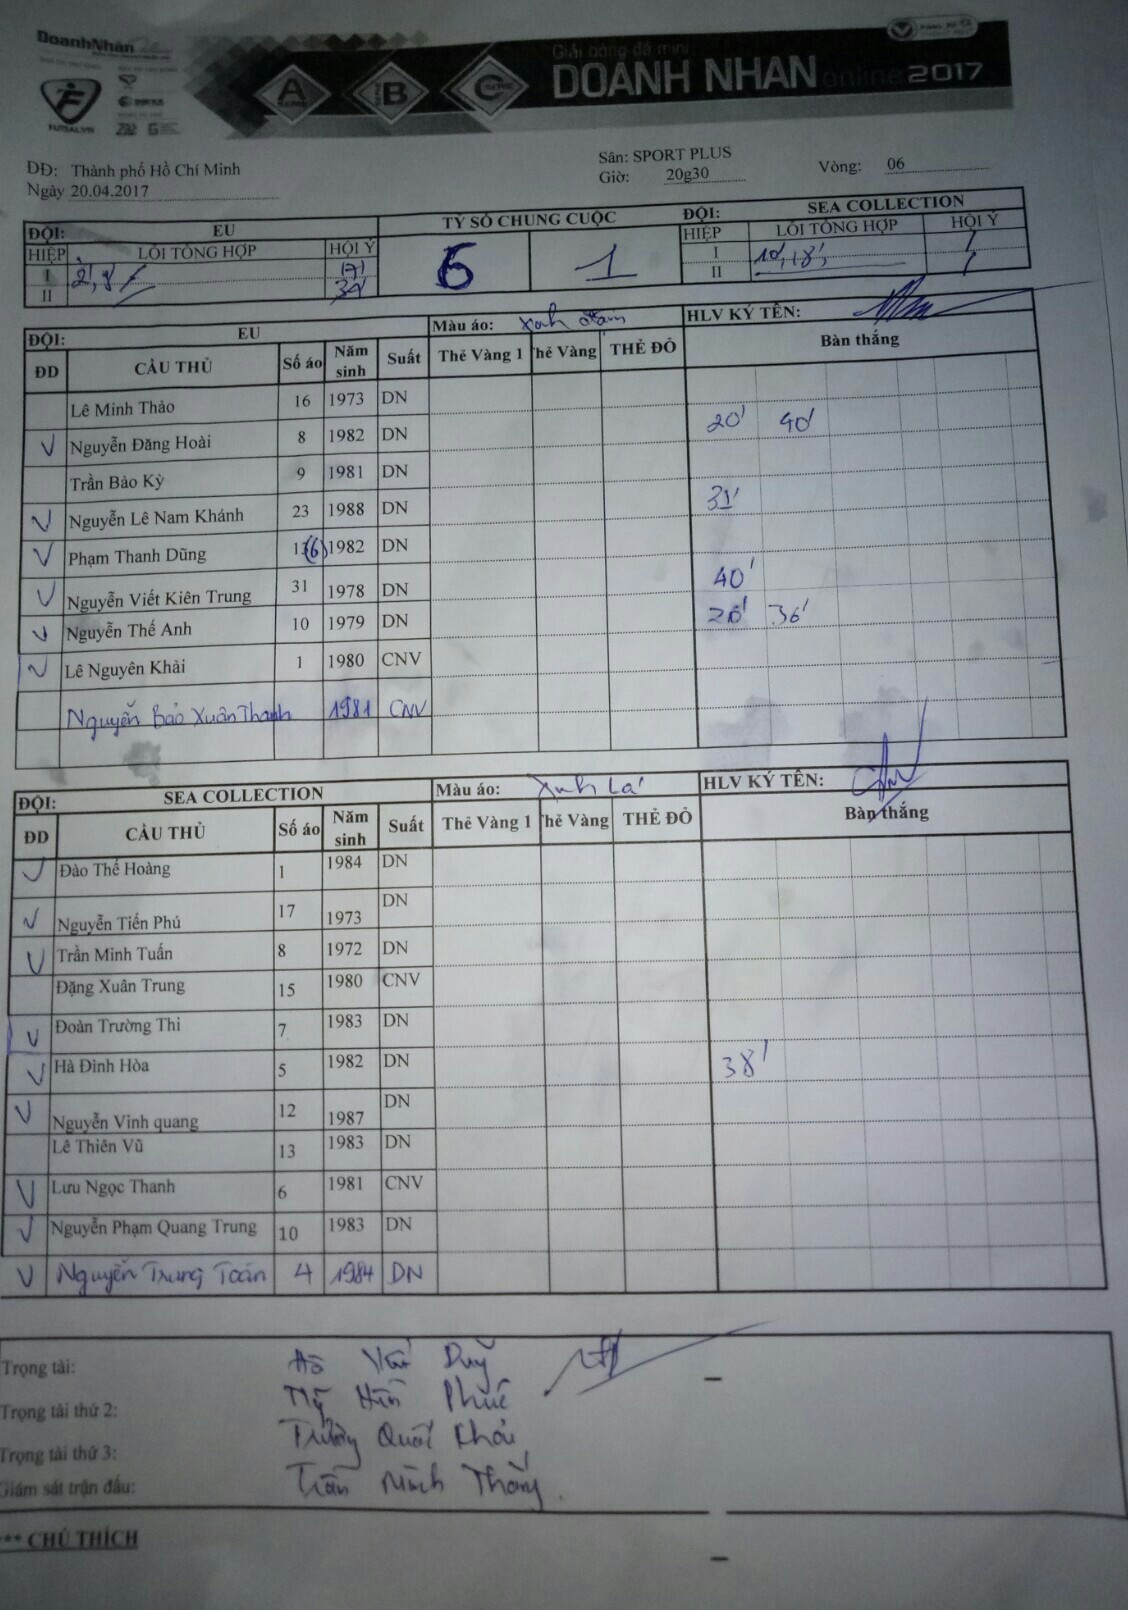 DoanhNhân
FUTSALVN
Giải bóng đá mini
DOANH NHAN online 2017
A B C
Sân: SPORT PLUS
DĐ: Thành phố Hồ Chí Minh
Giờ: 20g30 Vòng: 06
Ngày 20.04.2017
ĐỘI: EU TỶ SỐ CHUNG CUỘC ĐỘI: SEA COLLECTION
HIỆP LỖI TỔNG HỢP HỘI Ý 6 1 HIỆP LỖI TỔNG HỢP HỘI Ý
I 2', 8' 17' I 10', 18', /
II 39' II /
ĐỘI: EU Màu áo: Xanh đậm HLV KÝ TÊN:
ĐD CẦU THỦ Số áo Năm sinh Suất Thẻ Vàng 1 Thẻ Vàng THẺ ĐỎ Bàn thắng
Lê Minh Thảo 16 1973 DN
V Nguyễn Đăng Hoài 8 1982 DN 20' 40'
Trần Bảo Kỳ 9 1981 DN
V Nguyễn Lê Nam Khánh 23 1988 DN 31'
V Phạm Thanh Dũng (6) 1982 DN
V Nguyễn Viết Kiên Trung 31 1978 DN 40'
V Nguyễn Thế Anh 10 1979 DN 36'
V Lê Nguyên Khải 1 1980 CNV
Nguyễn Bảo Xuân Thanh 1981 CNV
ĐỘI: SEA COLLECTION Màu áo: Xanh Lá HLV KÝ TÊN:
ĐD CẦU THỦ Số áo Năm sinh Suất Thẻ Vàng 1 Thẻ Vàng THẺ ĐỎ Bàn thắng
V Đào Thế Hoàng 1 1984 DN
V Nguyễn Tiến Phú 17 1973 DN
V Trần Minh Tuấn 8 1972 DN
Đặng Xuân Trung 15 1980 CNV
V Đoàn Trường Thi 7 1983 DN
V Hà Đình Hòa 5 1982 DN 38'
V Nguyễn Vinh quang 12 1987 DN
Lê Thiên Vũ 13 1983 DN
V Lưu Ngọc Thanh 6 1981 CNV
V Nguyễn Phạm Quang Trung 10 1983 DN
V Nguyễn Trung Toán 4 1984 DN
Trọng tài: Duy
Trọng tài thứ 2:
Trọng tài thứ 3: Trương Quốc Khải
Giám sát trận đấu: Trần Minh Thắng
*** CHÚ THÍCH